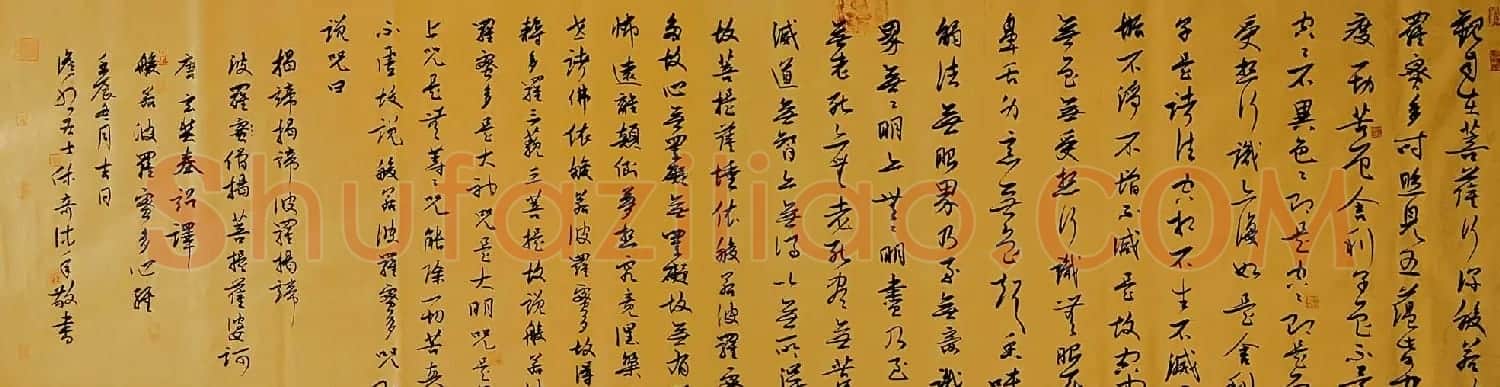 觀自在菩薩行深般若
羅蜜多時照見五蘊皆
度一切苦厄舍利子色不異
空々不異色々即是空々即是
受想行識亦復如是舍利
子是諸法空相不生不滅
垢不淨不增不減是故空中
無色無受想行識無眼耳
鼻舌身意無色聲香味
觸法無眼界乃至無意識
界無々明亦無々明盡乃至
無老死亦無老死盡無苦
滅道無智亦無得以無所得
故菩提薩埵依般若波羅蜜
多故心無罣礙無罣礙故無有
怖遠離顛倒夢想究竟涅槃
世諸佛依般若波羅蜜多故得
耨多羅三藐三菩提故說般若
羅蜜多是大神咒是大明咒是
上咒是無等々咒能除一切苦真
不虛故說般若波羅蜜多咒
說咒曰
揭諦揭諦波羅揭諦
波羅蜜僧揭菩提薩婆訶
唐玄奘奉詔譯
般若波羅蜜多心經
壬辰五月吉日
居士 敬書
Shufaziliao.COM